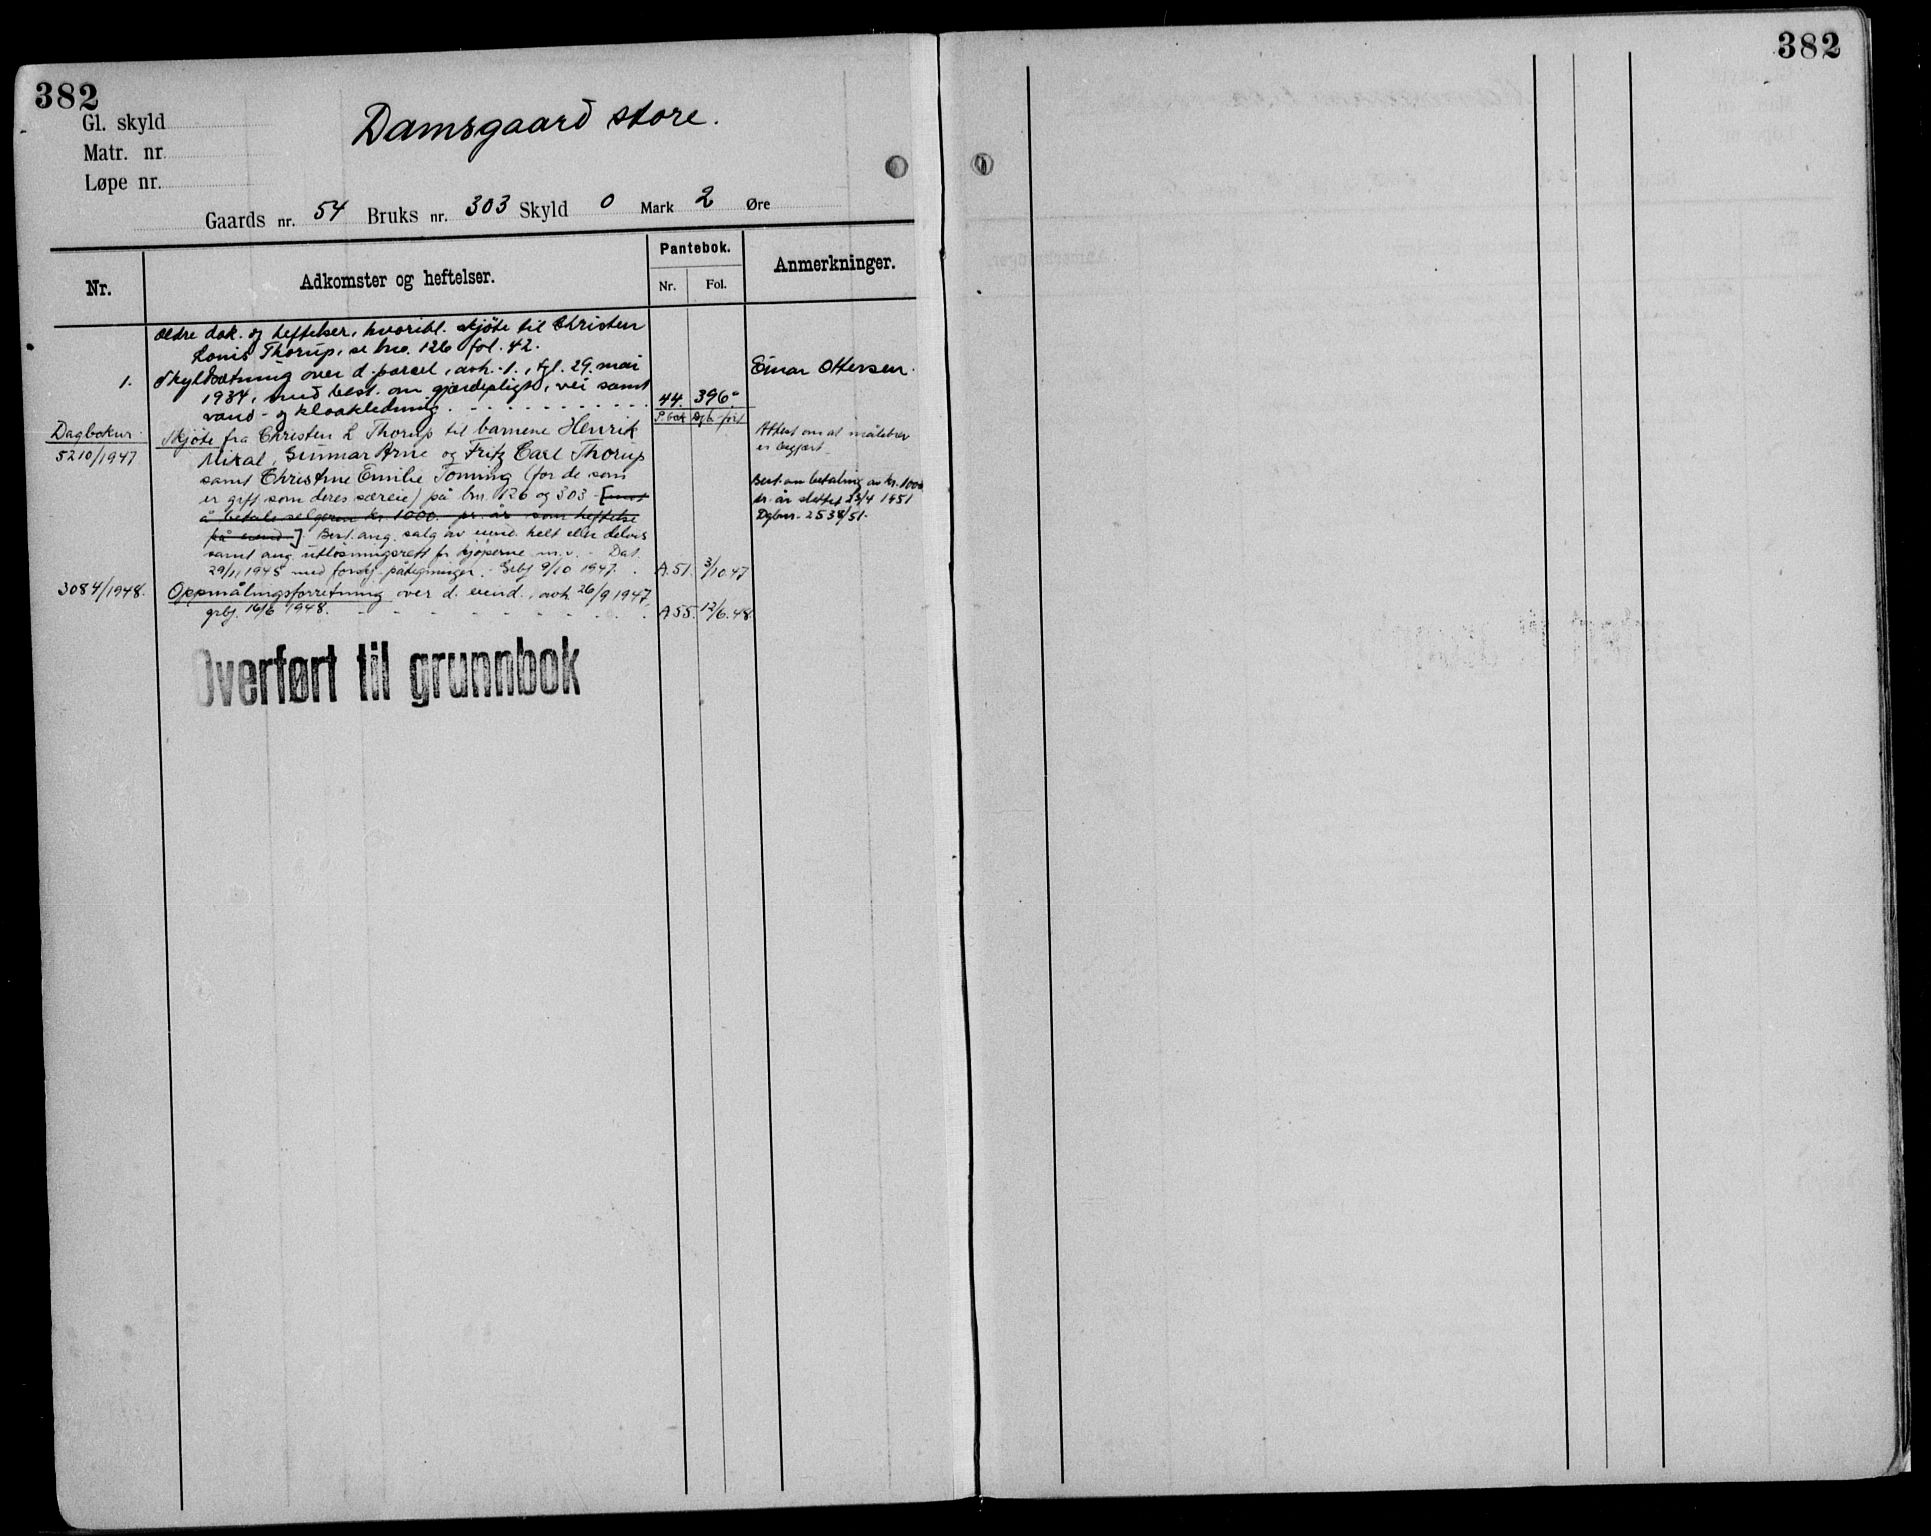 382
Gl. skyld
Matr. nr.
Løpe nr.
Damsgaard store.
Gaards nr. 54 Bruks nr. 303 Skyld 0 Mark 2 Øre
Nr.
Adkomster og heftelser.
Pantebok.
Nr.
Fol.
Anmerkninger.
Ældre dok. og heftelser, hvoribl. skjöte til Christen
Louis Thorup, se bno. 126 fol. 42.
1. Skyldsætning over d. parcel, avh. 1., tgl. 29. mai
1934, med best. om gjærdepligt, vei samt
vand- og kloakledning. 44. 396.
Einar Ottersen.
P.bok Dgb. ført
Dagboknr.
5210/1947
Skjöte fra Christen L Thorup til barnene Henrik
Mikal, Gunnar Arne og Fritz Carl Thorup
samt Christine Emilie Tonning (for de som
er gift som deres særeie) på bnr. 126 og 303 - [mot
å betale selgeren kr. 1000. pr. år som heftelse
på eiend.] Best. ang. salg av eiend. helt eller delvis
samt ang utløsningsrett for kjøperne m.v. - Dat.
29/11 1945 med forskj. påtegninger. - Grbf 9/10 1947. A. 51. 3/10.47
Attest om at målebrev
er begjært.
Best. om betaling av kr. 1000
pr. år slettet 23/4 1951
Dgbnr. 2538/51.
3084/1948.
Oppmålingsforretning over d. eiend., avh 26/9 1947,
grbf. 16/6 1948. A 55. 12/6.48.
Overført til grunnbok
382